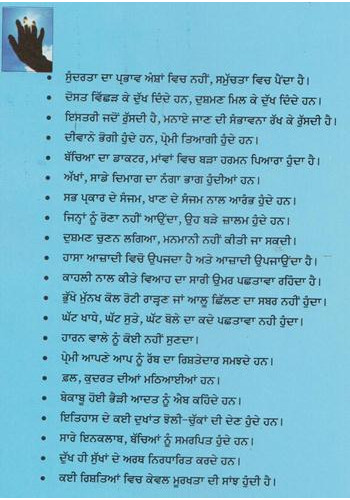 ਸੁੰਦਰਤਾ ਦਾ ਪ੍ਰਭਾਵ ਅੰਸ਼ਾਂ ਵਿਚ ਨਹੀਂ, ਸਮੁੱਚਤਾ ਵਿਚ ਪੈਂਦਾ ਹੈ।
ਦੋਸਤ ਵਿੱਛੜ ਕੇ ਦੁੱਖ ਦਿੰਦੇ ਹਨ, ਦੁਸ਼ਮਣ ਮਿਲ ਕੇ ਦੁੱਖ ਦਿੰਦੇ ਹਨ।
ਇਸਤਰੀ ਜਦੋਂ ਰੁੱਸਦੀ ਹੈ, ਮਨਾਏ ਜਾਣ ਦੀ ਸੰਭਾਵਨਾ ਰੱਖ ਕੇ ਰੁੱਸਦੀ ਹੈ।
ਦੀਵਾਨੇ ਭੋਗੀ ਹੁੰਦੇ ਹਨ, ਪ੍ਰੇਮੀ ਤਿਆਗੀ ਹੁੰਦੇ ਹਨ।
ਬੱਚਿਆ ਦਾ ਡਾਕਟਰ, ਮਾਂਵਾਂ ਵਿਚ ਬੜਾ ਹਰਮਨ ਪਿਆਰਾ ਹੁੰਦਾ ਹੈ।
ਅੱਖਾਂ, ਸਾਡੇ ਦਿਮਾਗ ਦਾ ਨੰਗਾ ਭਾਗ ਹੁੰਦੀਆਂ ਹਨ।
ਸਭ ਪ੍ਰਕਾਰ ਦੇ ਸੰਜਮ, ਖਾਣ ਦੇ ਸੰਜਮ ਨਾਲ ਆਰੰਭ ਹੁੰਦੇ ਹਨ।
ਜਿਨ੍ਹਾਂ ਨੂੰ ਰੋਣਾ ਨਹੀਂ ਆਉਂਦਾ, ਉਹ ਬੜੇ ਜ਼ਾਲਮ ਹੁੰਦੇ ਹਨ।
ਦੁਸ਼ਮਣ ਚੁਣਨ ਲਗਿਆ, ਮਨਮਾਨੀ ਨਹੀਂ ਕੀਤੀ ਜਾ ਸਕਦੀ।
ਹਾਸਾ ਆਜ਼ਾਦੀ ਵਿਚੋਂ ਉਪਜਦਾ ਹੈ ਅਤੇ ਆਜ਼ਾਦੀ ਉਪਜਾਉਂਦਾ ਹੈ।
ਕਾਹਲੀ ਨਾਲ ਕੀਤੇ ਵਿਆਹ ਦਾ ਸਾਰੀ ਉਮਰ ਪਛਤਾਵਾ ਰਹਿੰਦਾ ਹੈ।
ਭੁੱਖੇ ਮੁੱਨਖ ਕੋਲ ਰੋਟੀ ਰਾੜ੍ਹਣ ਜਾਂ ਆਲੂ ਛਿੱਲਣ ਦਾ ਸਬਰ ਨਹੀਂ ਹੁੰਦਾ।
ਘੱਟ ਖਾਧੇ, ਘੱਟ ਸੁਤੇ, ਘੱਟ ਬੋਲੇ ਦਾ ਕਦੇ ਪਛਤਾਵਾ ਨਹੀ ਹੁੰਦਾ।
ਹਾਰਨ ਵਾਲੇ ਨੂੰ ਕੋਈ ਨਹੀਂ ਸੁਣਦਾ।
ਪ੍ਰੇਮੀ ਆਪਣੇ ਆਪ ਨੂੰ ਰੱਬ ਦਾ ਰਿਸ਼ਤੇਦਾਰ ਸਮਝਦੇ ਹਨ।
ਫ਼ਲ, ਕੁਦਰਤ ਦੀਆਂ ਮਠਿਆਈਆਂ ਹਨ।
ਬੇਕਾਬੂ ਹੋਈ ਭੈੜੀ ਆਦਤ ਨੂੰ ਐਬ ਕਹਿੰਦੇ ਹਨ।
ਇਤਿਹਾਸ ਦੇ ਕਈ ਦੁਖਾਂਤ ਝੋਲੀ-ਚੁੱਕਾਂ ਦੀ ਦੇਣ ਹੁੰਦੇ ਹਨ।
ਸਾਰੇ ਇਨਕਲਾਬ, ਬੱਚਿਆਂ ਨੂੰ ਸਮਰਪਿਤ ਹੁੰਦੇ ਹਨ।
ਦੁੱਖ ਹੀ ਸੁੱਖਾਂ ਦੇ ਅਰਥ ਨਿਰਧਾਰਿਤ ਕਰਦੇ ਹਨ।
ਕਈ ਰਿਸ਼ਤਿਆਂ ਵਿਚ ਕੇਵਲ ਮੂਰਖਤਾ ਦੀ ਸਾਂਝ ਹੁੰਦੀ ਹੈ।